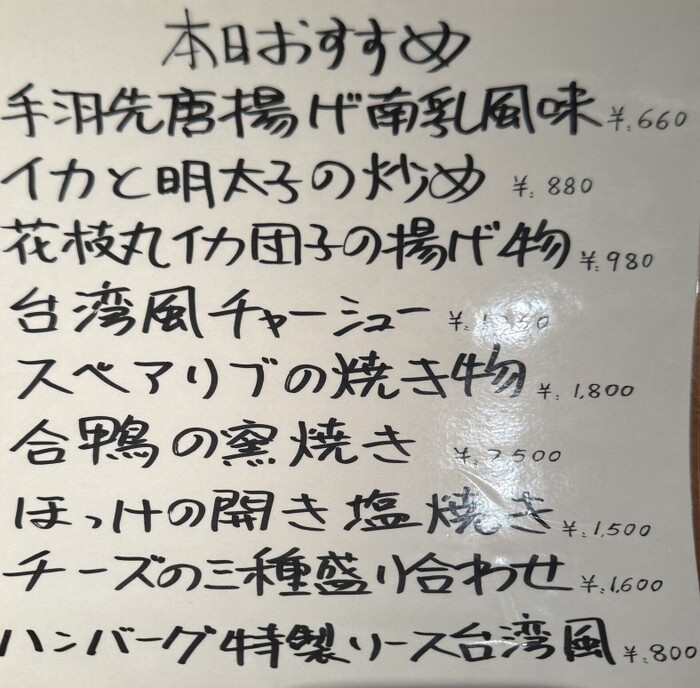 本日おすすめ
手羽先唐揚げ南乳風味 ¥.660
イカと明太子の炒め ¥.880
花枝丸イカ団子の揚げ物 ¥.980
台湾風チャーシュー
スペアリブの焼き物 ¥.1,800
合鴨の窯焼き ¥.2500
ほっけの開き塩焼き ¥.1,500
チーズの三種盛り合わせ ¥.1,600
ハンバーグ特製ソース台湾風 ¥.800